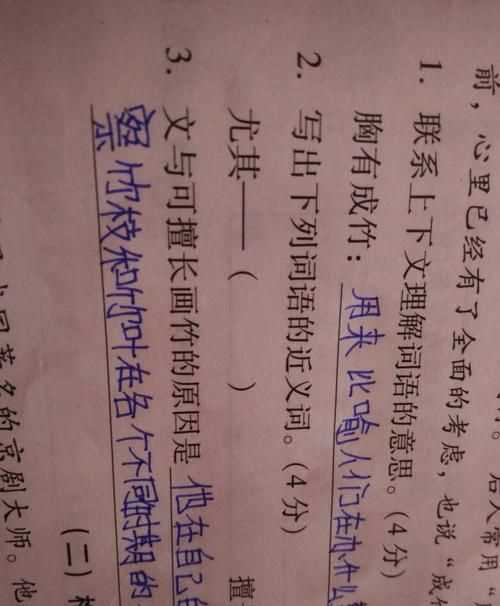 。后人常用“
前，心里已经有了全面的考虑，也说“成
1. 联系上下文理解词语的意思。（4分）
胸有成竹：用来比喻人们在办什么
2. 写出下列词语的近义词。（4分）
尤其——（ ） 擅
3. 文与可擅长画竹的原因是他在自己
察竹枝和竹叶在各个不同时期的
（二）
国著名的京剧大师。他